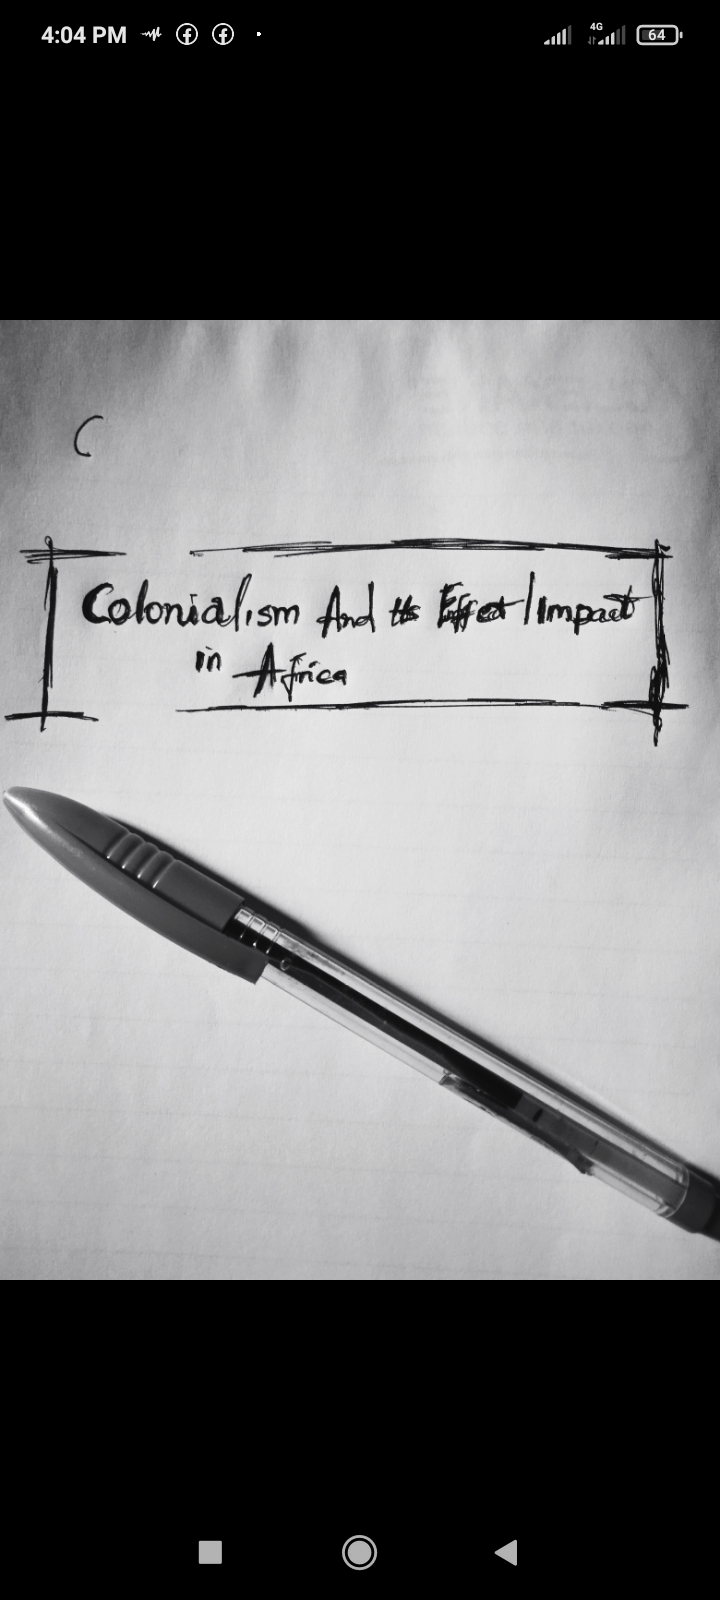 4:04 PM
4G
64
C
Colonialism And Its Effect/Impact
in Africa